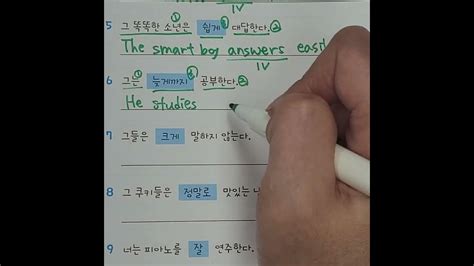 IV
5 그 똑똑한 소년은 쉽게 대답한다.
The smart boy answers
IV
6 그는 늦게까지 공부한다.
He studies
7 그들은 크게 말하지 않는다.
8 그 쿠키들은 정말로 맛있는
9 너는 피아노를 잘 연주한다.